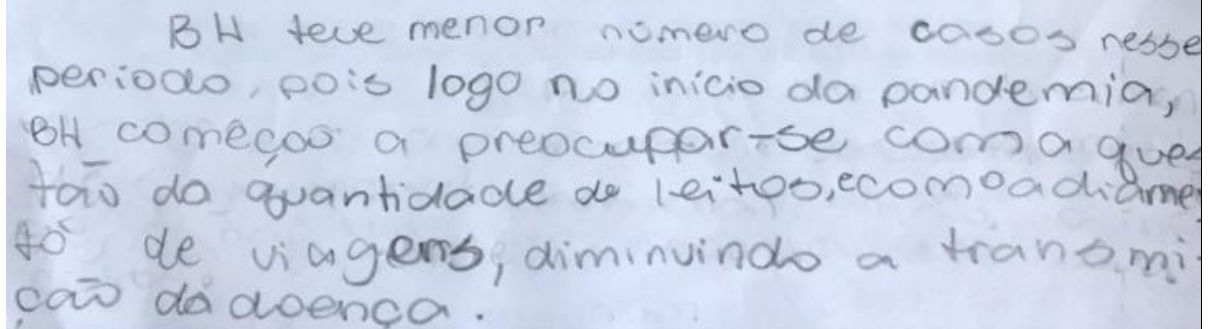 BH teve menor número de casos nesse
periodo, pois logo no início da pandemia,
BH começou a preocupar-se com a ques
tão da quantidade de leitos, e com o adiame
to de viagens, diminuindo a transmi
ção da doença.